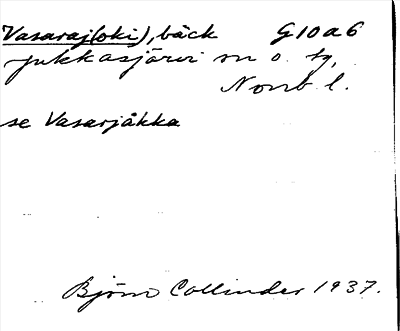 Vasaraj(oki), bäck G10a6
Jukkasjärvi sn o. tg,
Norrb. l.
se Vasarjåkka
Björn Collinder 1937.